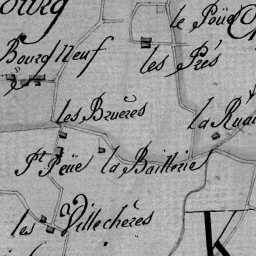 ourg
le Poüe
Bourg Neuf
les Prés
les Bruères
la Ruau
P.t Peüe
la Baitterie
les Villechéres
K